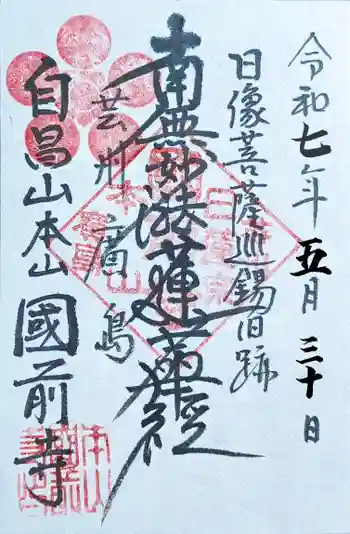 令和七年五月三十日
日像菩薩巡錫旧跡
南無妙法蓮華経
芸州廣島
自昌山本山國前寺